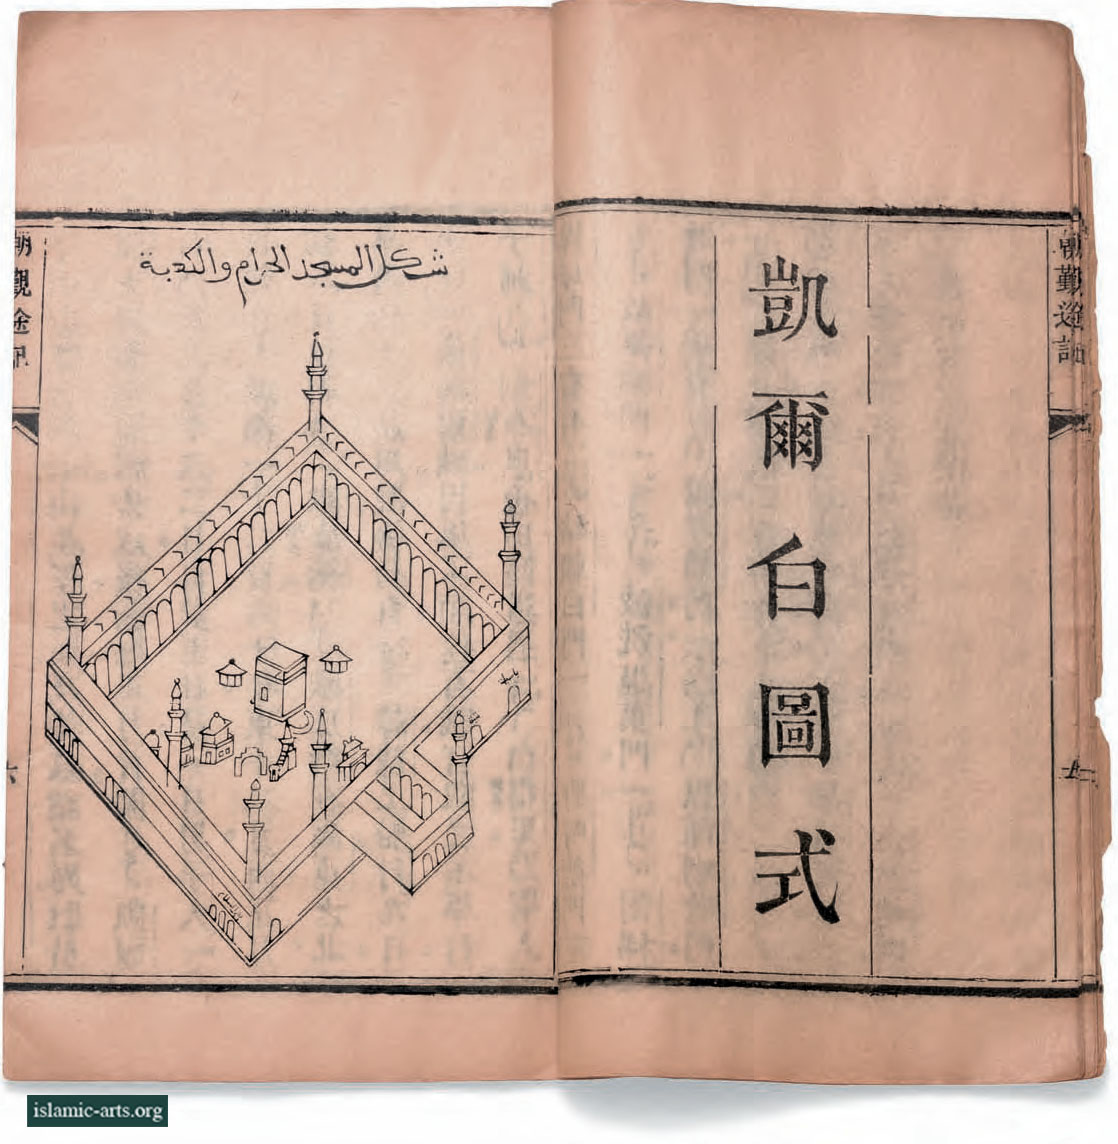 凱爾白圖式
朝覲途記
شكل المسجد الحرام والكعبة
朝覲途記
islamic-arts.org